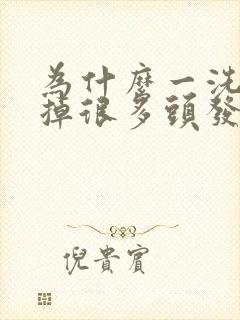 為什麼一洗
掉很多頭發
倪貴賓